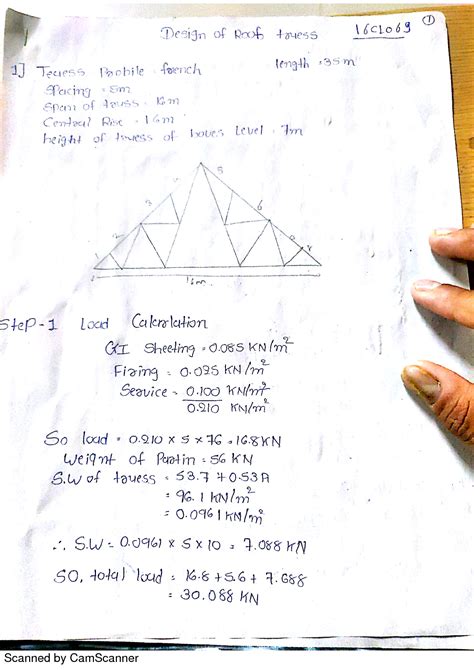 ①
Design of Roof truess 16C1069
1] Teuess Profile - french length = 35m
Spacing = 5m
Span of truss = 16m
Central Rise = 1.6m
height of truess of Level = 7m
1 5
6
8
16m
Step-1 Load Calculation
GI Sheeting = 0.085 KN/m²
Fixing = 0.025 KN/m²
Service = 0.100 KN/m²
0.210 KN/m²
So load = 0.210 x 5 x 16 = 16.8KN
Weight of = 56 KN
S.W of truess = 53.7 + 0.53A
= 96.1 KN/m²
= 0.0961 KN/m²
∴ S.W = 0.0961 x 5 x 10 = 7.088 KN
SO, total load = 16.8 + 5.6 + 7.688
= 30.088 KN
Scanned by CamScanner